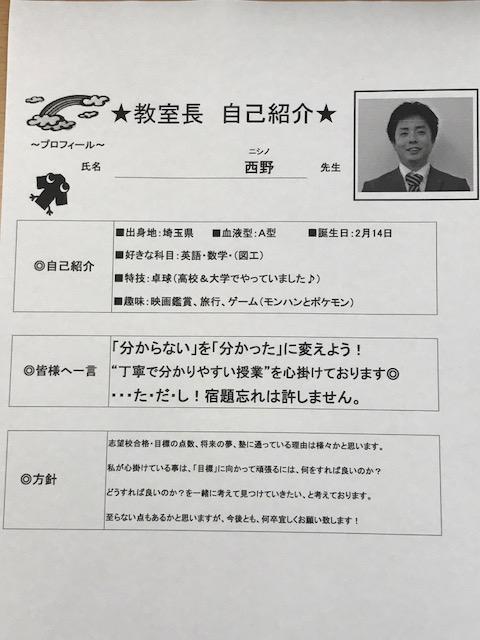 ★教室長　自己紹介★
～プロフィール～
ニシノ
氏名　西野　先生
◎自己紹介
■出身地:埼玉県　■血液型:A型　■誕生日:2月14日
■好きな科目:英語・数学・(図工)
■特技:卓球(高校＆大学でやっていました♪)
■趣味:映画鑑賞、旅行、ゲーム(モンハンとポケモン)
◎皆様へ一言
「分からない」を「分かった」に変えよう！
“丁寧で分かりやすい授業”を心掛けております◎
・・・た・だ・し！宿題忘れは許しません。
◎方針
志望校合格・目標の点数、将来の夢、塾に通っている理由は様々かと思います。
私が心掛けている事は、「目標」に向かって頑張るには、何をすれば良いのか？
どうすれば良いのか？を一緒に考えて見つけていきたい、と考えております。
至らない点もあるかと思いますが、今後とも、何卒宜しくお願い致します！